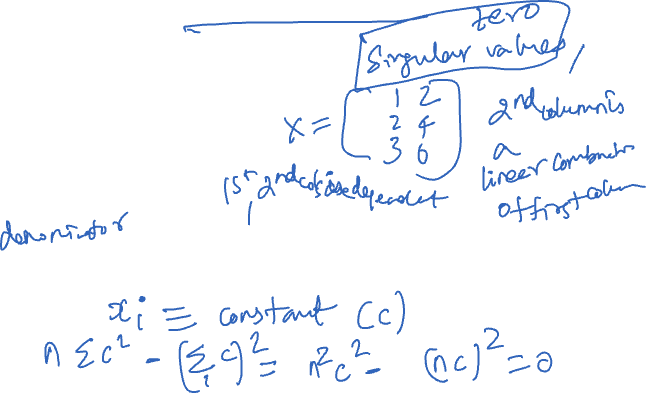 zero
Singular values
X = 1 2
2 4
3 6
2nd column is
a
linear combination
of first column
1st, 2nd cols are dependent
denominator
xi ≡ constant (c)
n Σc² - (Σ c)² = n²c² - (nc)² = 0
i